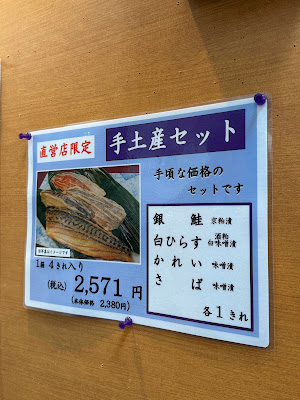 直営店限定
手土産セット
手頃な価格の
セットです
※写真はイメージです
1箱 4きれ入り
(税込) 2,571円
(本体価格 2,380円)
銀鮭 京粕漬
白ひらす 酒粕白味噌漬
かれい 味噌漬
さば 味噌漬
各1きれ